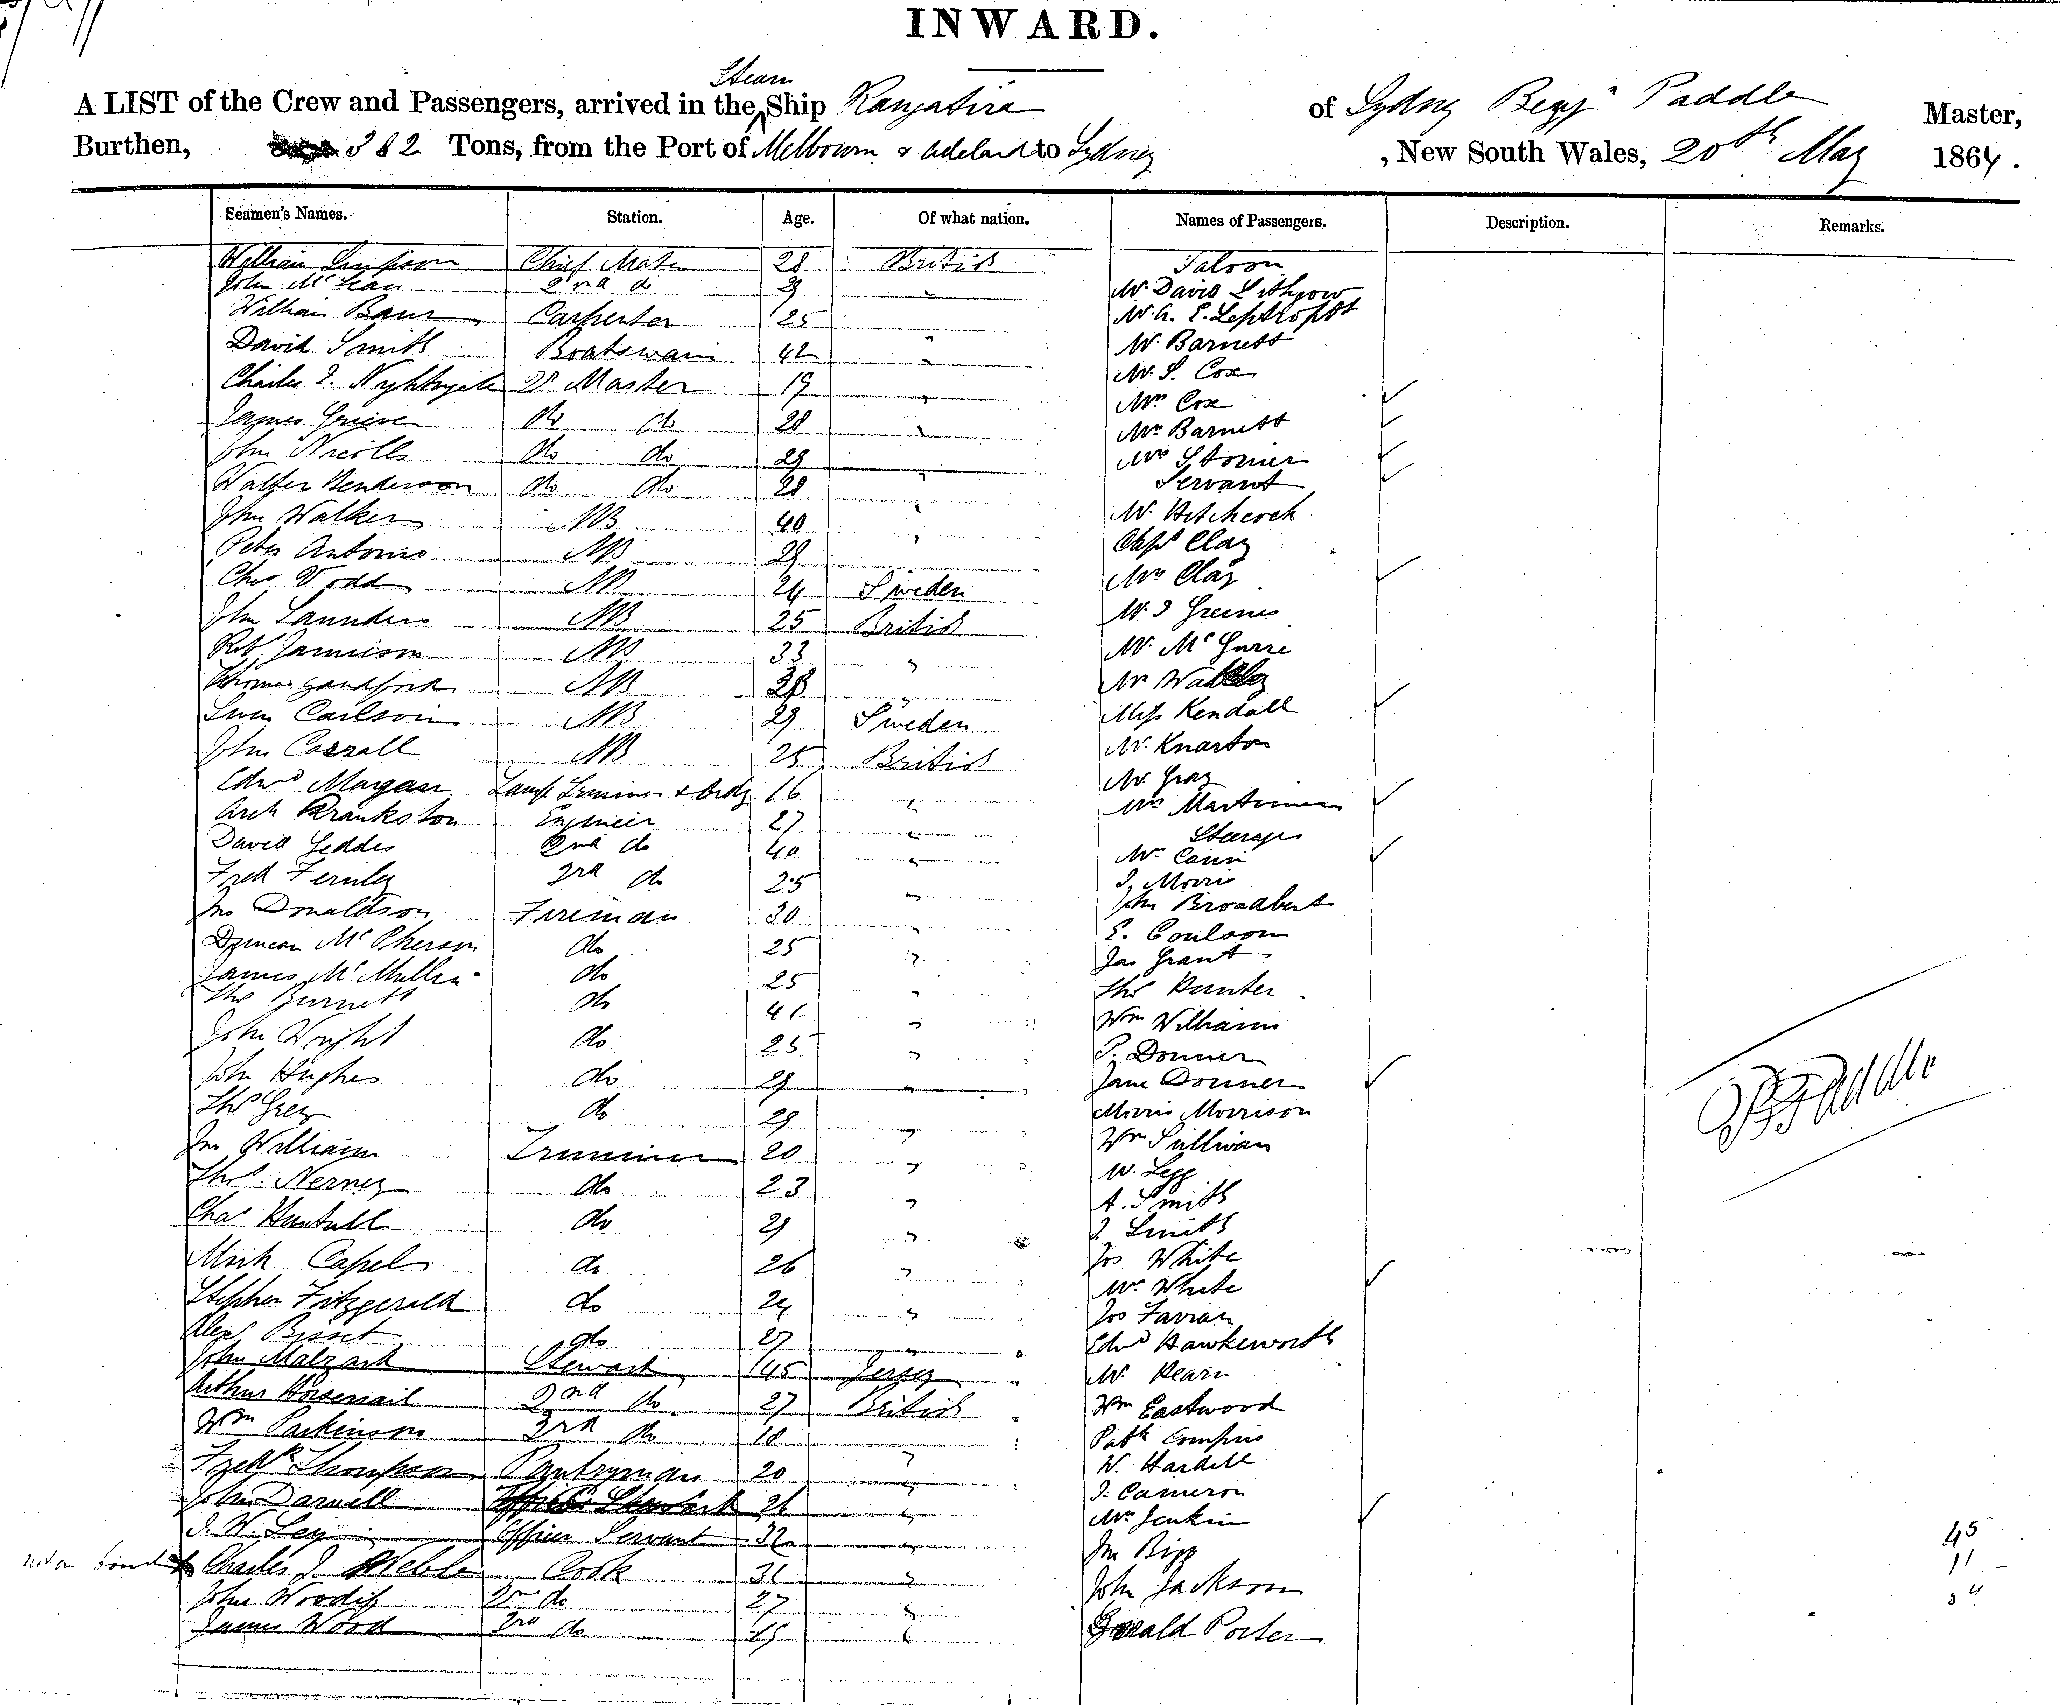 INWARD.
Steam
A LIST of the Crew and Passengers, arrived in the Ship Rangatira of Sydney Benjn Paddle Master,
Burthen, 382 Tons, from the Port of Melbourne & Adelaide to Sydney , New South Wales, 20th May 1864.
Seamen's Names. Station. Age. Of what nation. Names of Passengers. Description. Remarks.
William Simpson Chief Mate 28 British Saloon
John McLean 2nd do 29 " Mr David Lithgow
William Carpenter 25 Mr A. E.
David Smith Boatswain 42 " Mr Barnett
Charles Nightingale Master 19 " Mr S. Cox
James Grieve do do 28 " Mrs Cox
John Nicolls do do 29 Mrs Barnett
Walter Henderson do do 28 " Mrs Stonier
Servant
John Walker AB 40 " Mr Hitchcock
Peter Antonio AB 29 Capt Clay
Chas Vodd AB 24 Sweden Mrs Clay
John Saunders AB 25 British Mr J Greenes
Rob Jamieson AB 33 " Mr McGurre
Thomas Sandford AB 28 Mr
Swen Carlson AB 29 Sweden Miss Kendall
John Carrall AB 25 British Mr Knarton
Edwd Morgan Lamp Trimmer & Ordy 16 " Mr Gray
Arch Crankston Engineer 27 " Mrs Martimer
Steerage
David Geddes 2nd do 40 " Mrs Cann
Fredk Fernley 3rd do 25 " J. Morris
Jno Donaldson Fireman 30 " John Broadbent
Duncan McPherson do 25 " E. Coulson
James McMullin do 25 " Jas Grant
Thos Burnett do 41 " Thos Hunter
John Wright do 25 " Wm Williams
John Hughes do 29 " P. Donner
Jane Donner
Thos Grey do 29 " Morris Morrison
Jno Williams Trimmer 20 " Wm Sullivan
Thos Nerney do 23 " W. Legg
A. Smith
Chas Huntull do 29 " J Smith
Mark Capel do 26 " Jos White
Mrs White
Stephen Fitzgerald do 24 " Jos Farrian
Alex Bisset do 27 " Edwd Hawkesworth
John Malzard Steward 45 Jersey Mr Hearn
Arthur Horsenail 2nd do 27 British Wm Eastwood
Wm Parkinson 3rd do 18 Patk
Fredk Thompson Pantryman 20 " W. Hardill
John Darnell 26 " J. Cameron
J. W. Ley Officer Servant 32 " Mrs Jenkin
not on board Charles J. Webb Cook 31 " Jno Bigg
John Woodiss 2nd do 27 " John Jackson
James Wood 3rd do 15 " Gerald Porter
B Paddle
45
11